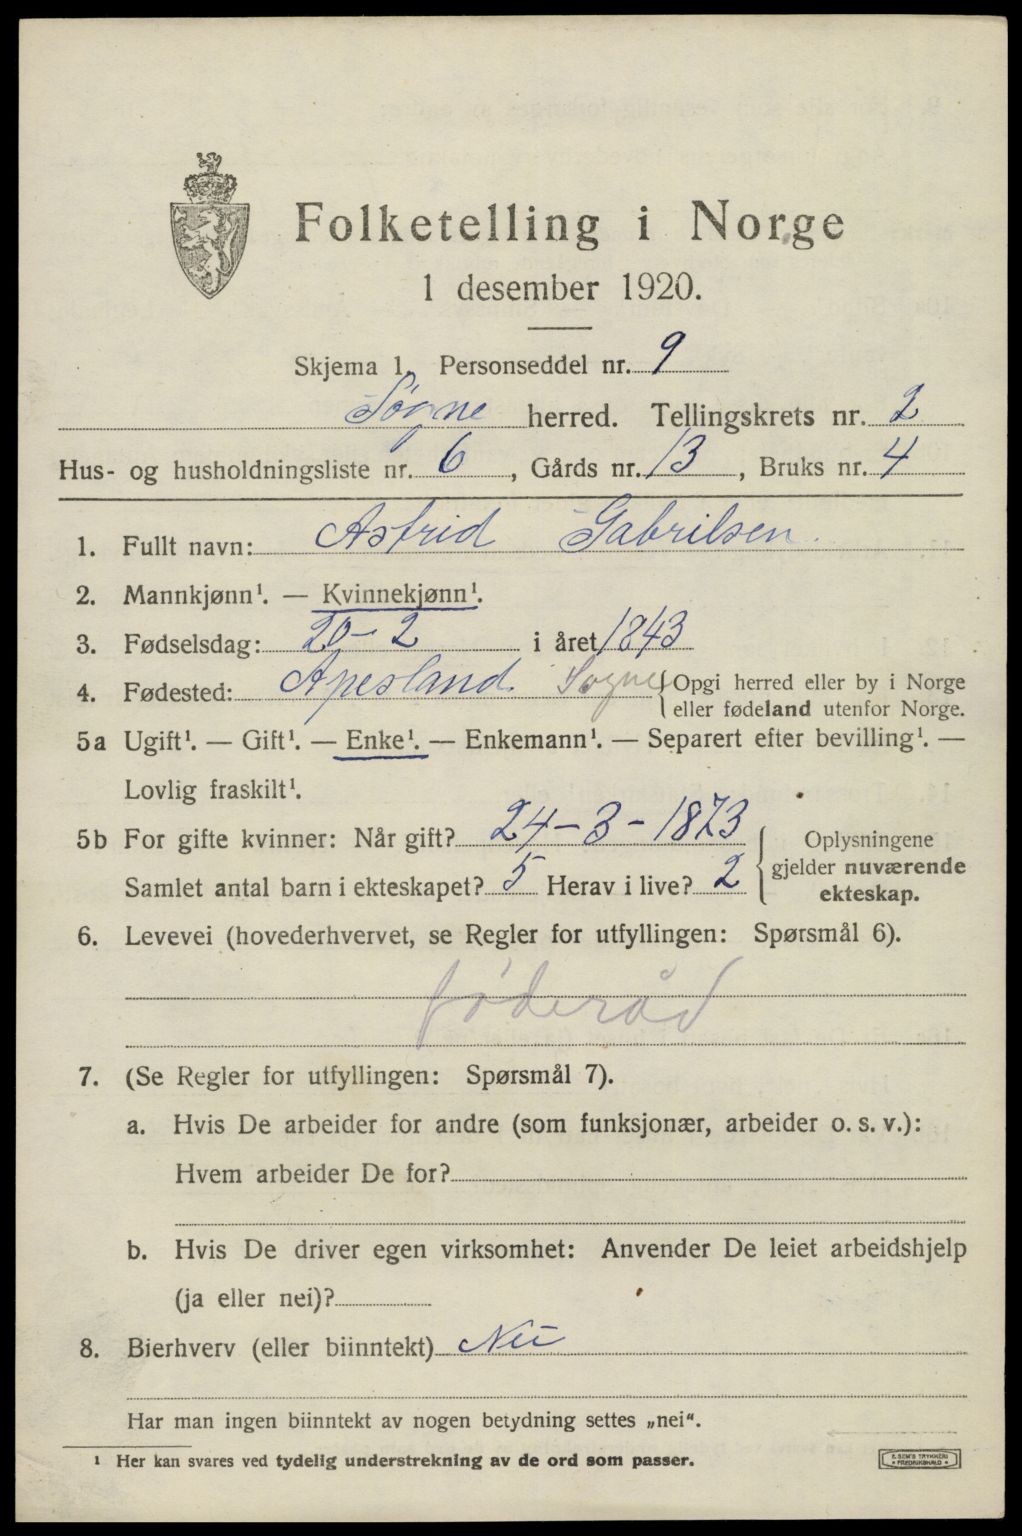 Folketelling i Norge
1 desember 1920.
Skjema 1. Personseddel nr. 9
Søgne herred. Tellingskrets nr. 2
Hus- og husholdningsliste nr. 6, Gårds nr. 13, Bruks nr. 4
1. Fullt navn: Astrid Gabrilsen.
2. Mannkjønn¹. — Kvinnekjønn¹.
3. Fødselsdag: 20-2 i året 1843
4. Fødested: Apesland Sogne { Opgi herred eller by i Norge
eller fødeland utenfor Norge.
5a Ugift¹. — Gift¹. — Enke¹. — Enkemann¹. — Separert efter bevilling¹. —
Lovlig fraskilt¹.
5b For gifte kvinner: Når gift? 24-3-1873
Samlet antal barn i ekteskapet? 5 Herav i live? 2
Oplysningene
gjelder nuværende
ekteskap.
6. Levevei (hovederhvervet, se Regler for utfyllingen: Spørsmål 6).
føderåd
7. (Se Regler for utfyllingen: Spørsmål 7).
a. Hvis De arbeider for andre (som funksjonær, arbeider o. s. v.):
Hvem arbeider De for?
b. Hvis De driver egen virksomhet: Anvender De leiet arbeidshjelp
(ja eller nei)?
8. Bierhverv (eller biinntekt) Nei
Har man ingen biinntekt av nogen betydning settes „nei“.
¹ Her kan svares ved tydelig understrekning av de ord som passer.
E. SEM'S TRYKKERI
FREDRIKSHALD